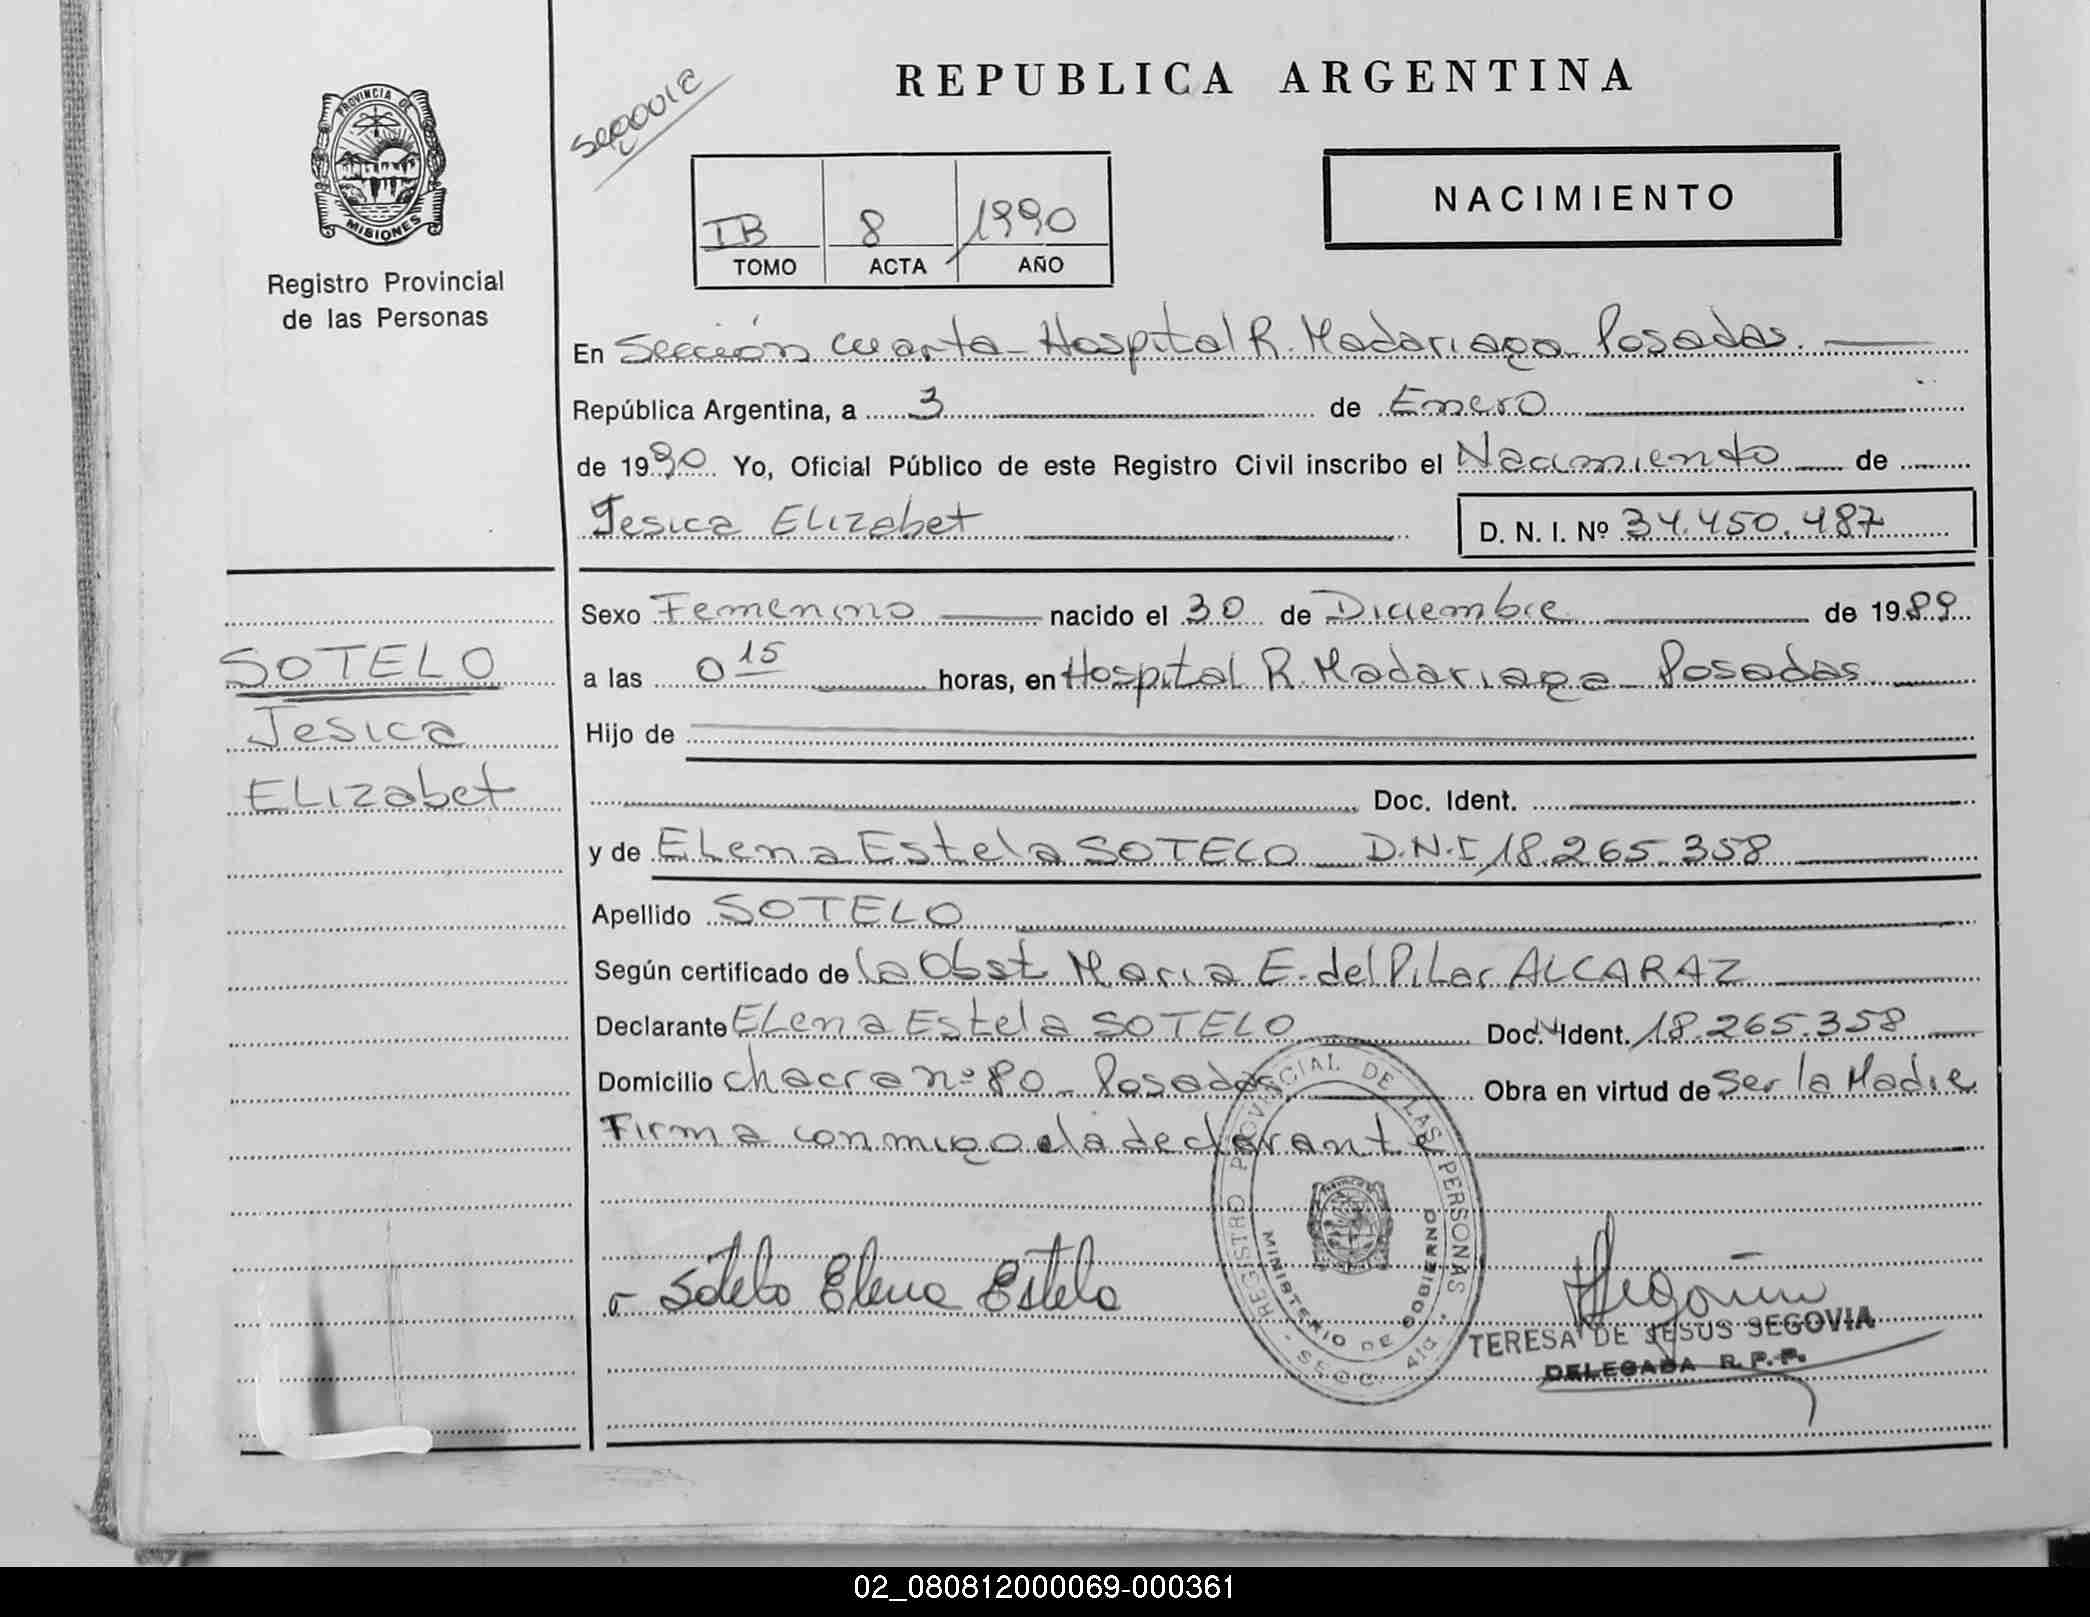 REPUBLICA ARGENTINA
PROVINCIA DE MISIONES
Registro Provincial
de las Personas
Segovia
NACIMIENTO
IB 8 1990
TOMO ACTA AÑO
En Sección cuarta - Hospital R. Madariaga - Posadas.
República Argentina, a 3 de Enero
de 1990 Yo, Oficial Público de este Registro Civil inscribo el Nacimiento de
Jesica ELizabet D. N. I. Nº 34.450.487
Sexo Femenino nacido el 30 de Diciembre de 1989
a las 0 15 horas, en Hospital R. Madariaga - Posadas
Hijo de
Doc. Ident.
y de ELena Estela SOTELO D.N.I 18.265.358
Apellido SOTELO
Según certificado de la Obst Maria E. del PiLar ALCARAZ
Declarante ELena Estela SOTELO Doc. Ident. 18.265.358
Domicilio chacra nº 80 - Posadas Obra en virtud de Ser la Madre
Firma conmigo la declarante
SOTELO
Jesica
ELizabet
Sotelo Elena Estela
REGISTRO PROVINCIAL DE LAS PERSONAS
MINISTERIO DE GOBIERNO
SECC. 4ta
Segovia
TERESA DE JESUS SEGOVIA
DELEGADA R. P. P.
02_080812000069-000361